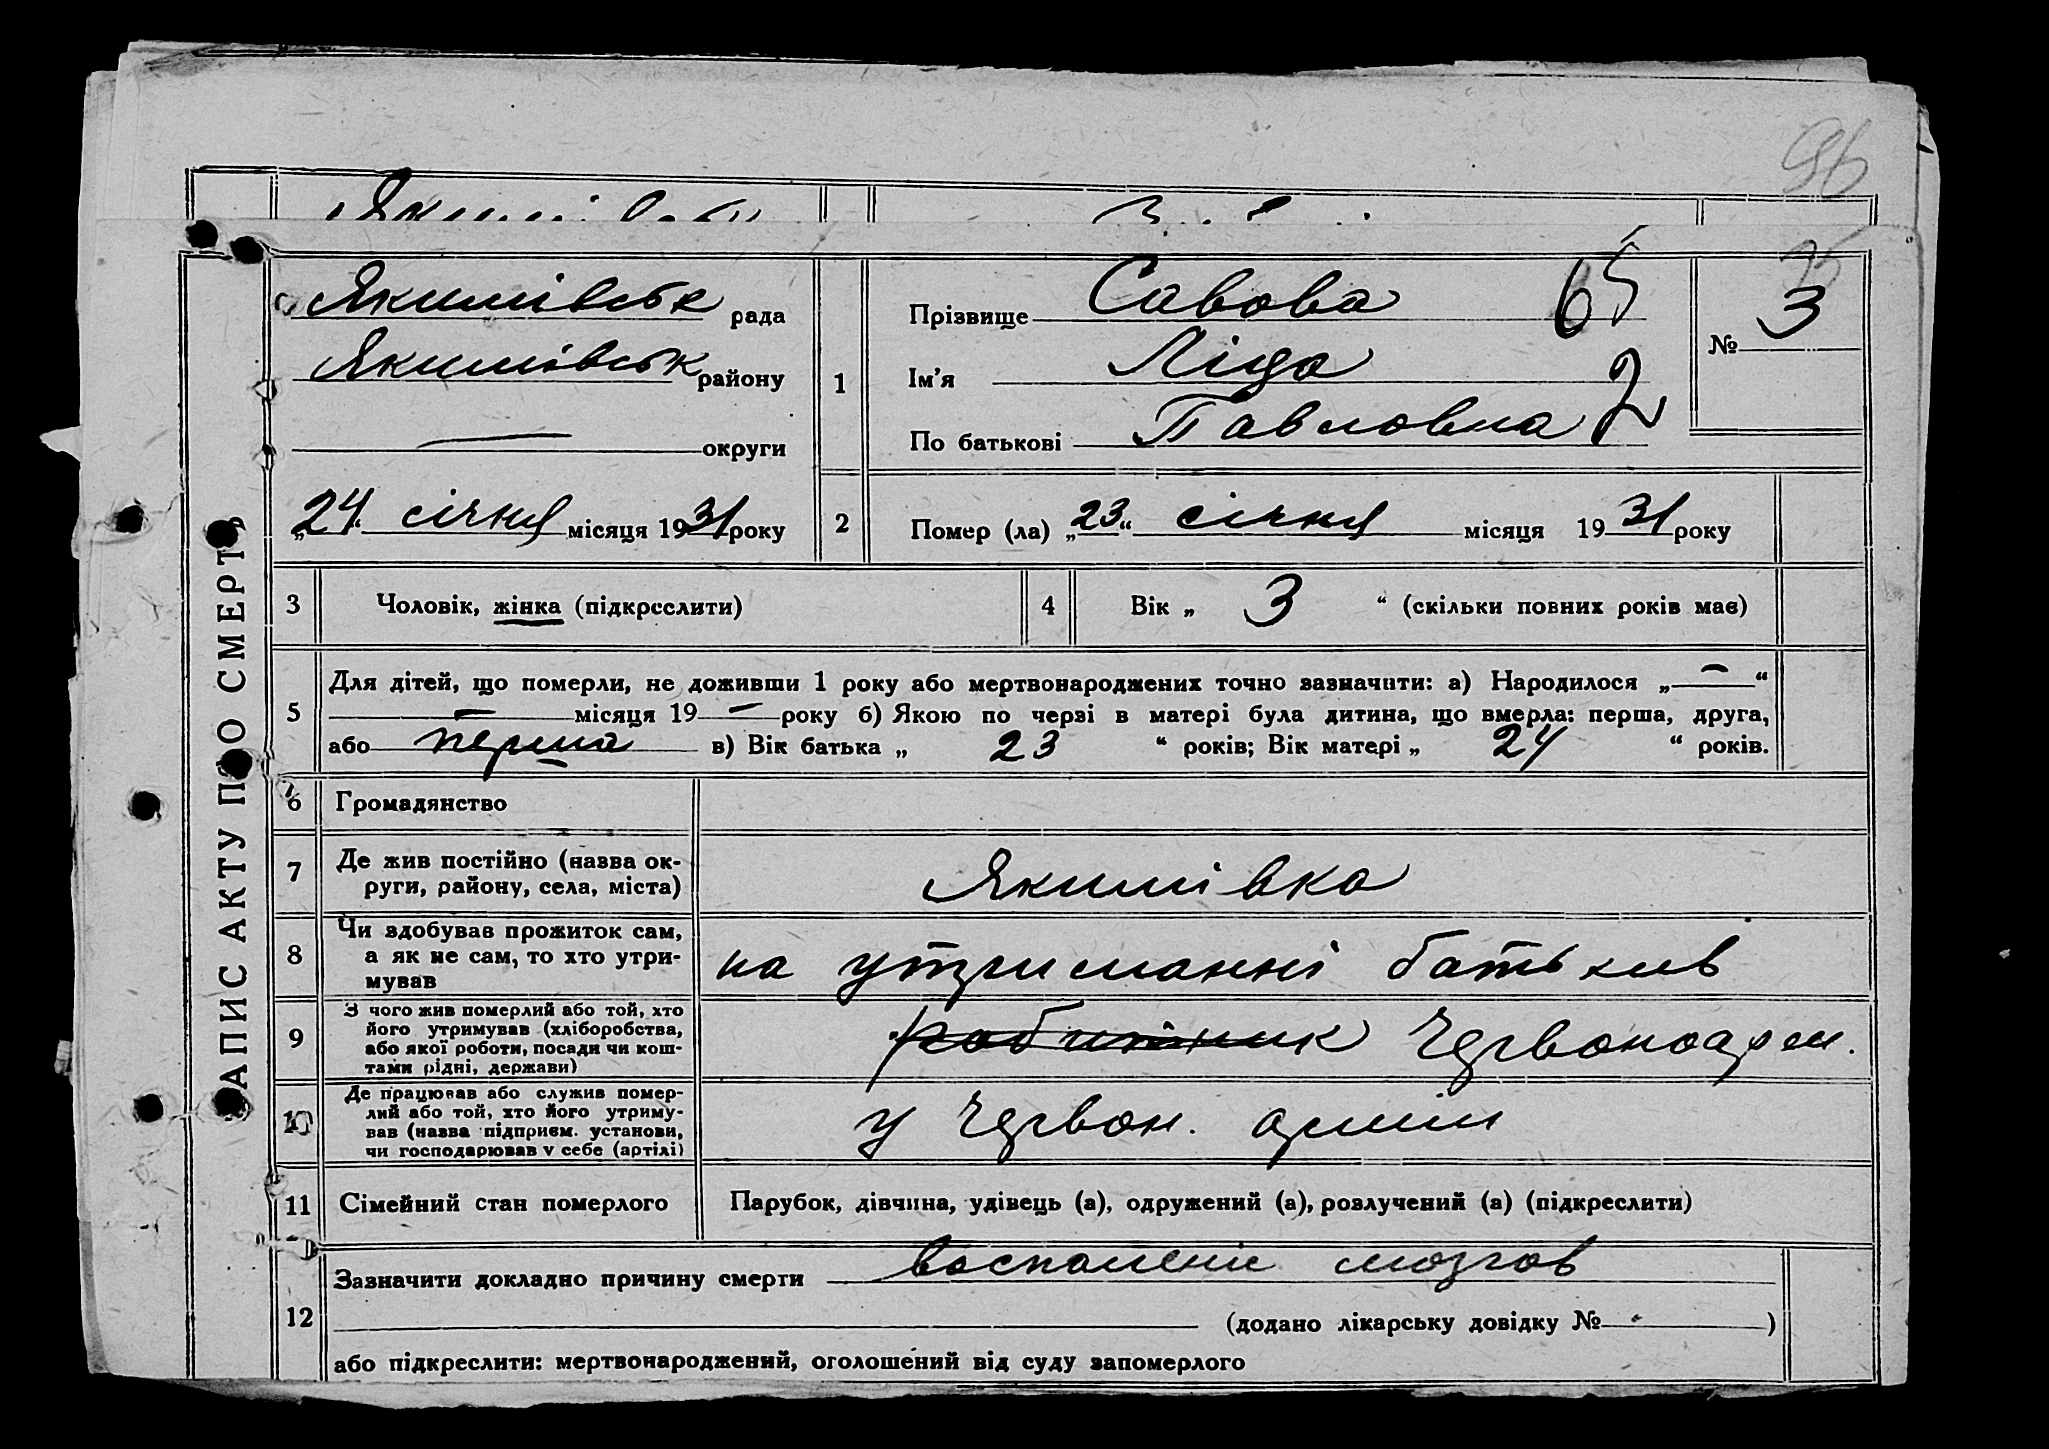 96
ЗАПИС АКТУ ПРО СМЕРТЬ
Якимівськ рада
Якимівськ району
— округи
„24“ січня місяця 1931 року
1
Прізвище Савова 65
Ім'я Ліда
По батькові Павловна 2
№ 3
2
Помер (ла) „23“ січня місяця 1931 року
3 Чоловік, жінка (підкреслити)
4 Вік „ 3 “ (скільки повних років має)
5
Для дітей, що померли, не доживши 1 року або мертвонароджених точно зазначити: а) Народилося „ — “
— місяця 19 — року б) Якою по черзі в матері була дитина, що вмерла: перша, друга,
або перша в) Вік батька „ 23 “ років; Вік матері „ 24 “ років.
6 Громадянство
7 Де жив постійно (назва ок-
руги, району, села, міста)
Якимівка
8
Чи здобував прожиток сам,
а як не сам, то хто утри-
мував
на утриманні батьків
9
З чого жив померлий або той, хто
його утримував (хліборобства,
або якої роботи, посади чи кош-
тами рідні, держави)
робитник Червоноарм.
10
Де працював або служив помер-
лий або той, хто його утриму-
вав (назва підприєм. установи,
чи господарював у себе (артілі)
у Червон. армії
11 Сімейний стан померлого
Парубок, дівчина, удівець (а), одружений (а), розлучений (а) (підкреслити)
12
Зазначити докладно причину смерти воспаление мозгов
(додано лікарську довідку № )
або підкреслити: мертвонароджений, оголошений від суду запомерлого